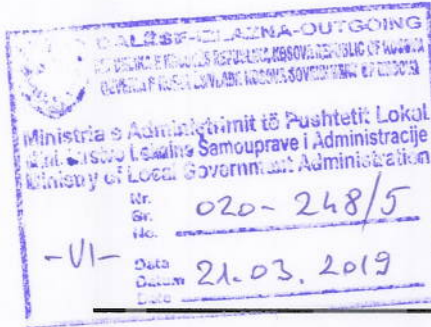 DALËSE-IZLAZNA-OUTGOING
Ministria e Administrimit të Pushtetit Lokal
Samouprave i Administracije
Ministry of Local Government Administration
Nr.
Br.
No. 020-248/5
-VI-
Data
Datum 21.03.2019
Date